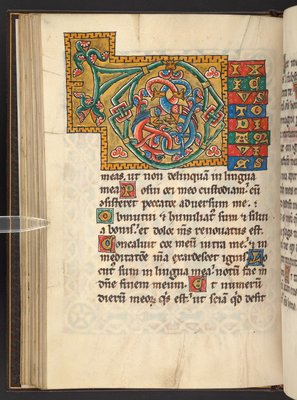 IXI
CVS
TO
DIA
VI
AS
meas, ut non delinquā in lingua
mea Posui ori meo custodiam, cū
consisteret peccator adversum me :
Obmutui & humiliat' sum & silui
a bonis, et dolor meus renovatus est.
Concaluit cor meū intra me, & in
meditatōe mea exardescet ignis Lo
cutus sum in lingua mea, notū fac m
dñe finem meum. Et numerū
dierū meorꝝ qs est, ut sciā qd desit